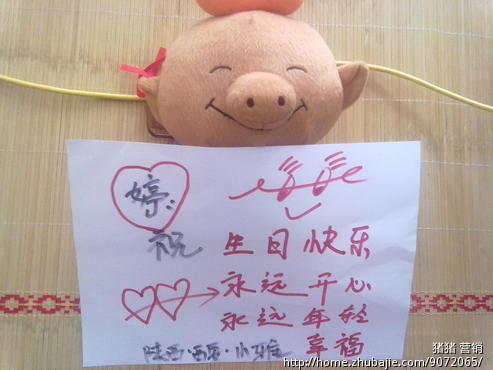 婷:
祝 生日快乐
永远开心
永远年轻
幸福
陕西·西安·小雅
猪猪 营销
http://home.zhubajie.com/9072065/